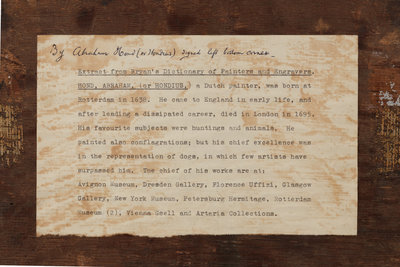 By Abraham Hond (or Hondius) signed left bottom corner.
Extract from Bryan's Dictionary of Painters and Engravers.
HOND, ABRAHAM, (or HONDIUS,) a Dutch painter, was born at
Rotterdam in 1638. He came to England in early life, and
after leading a dissipated career, died in London in 1695.
His favourite subjects were huntings and animals. He
painted also conflagrations; but his chief excellence was
in the representation of dogs, in which few artists have
surpassed him. The chief of his works are at:
Avignon Museum, Dresden Gallery, Florence Uffizi, Glasgow
Gallery, New York Museum, Petersburg Hermitage, Rotterdam
Museum (2), Vienna Gsell and Artaria Collections.